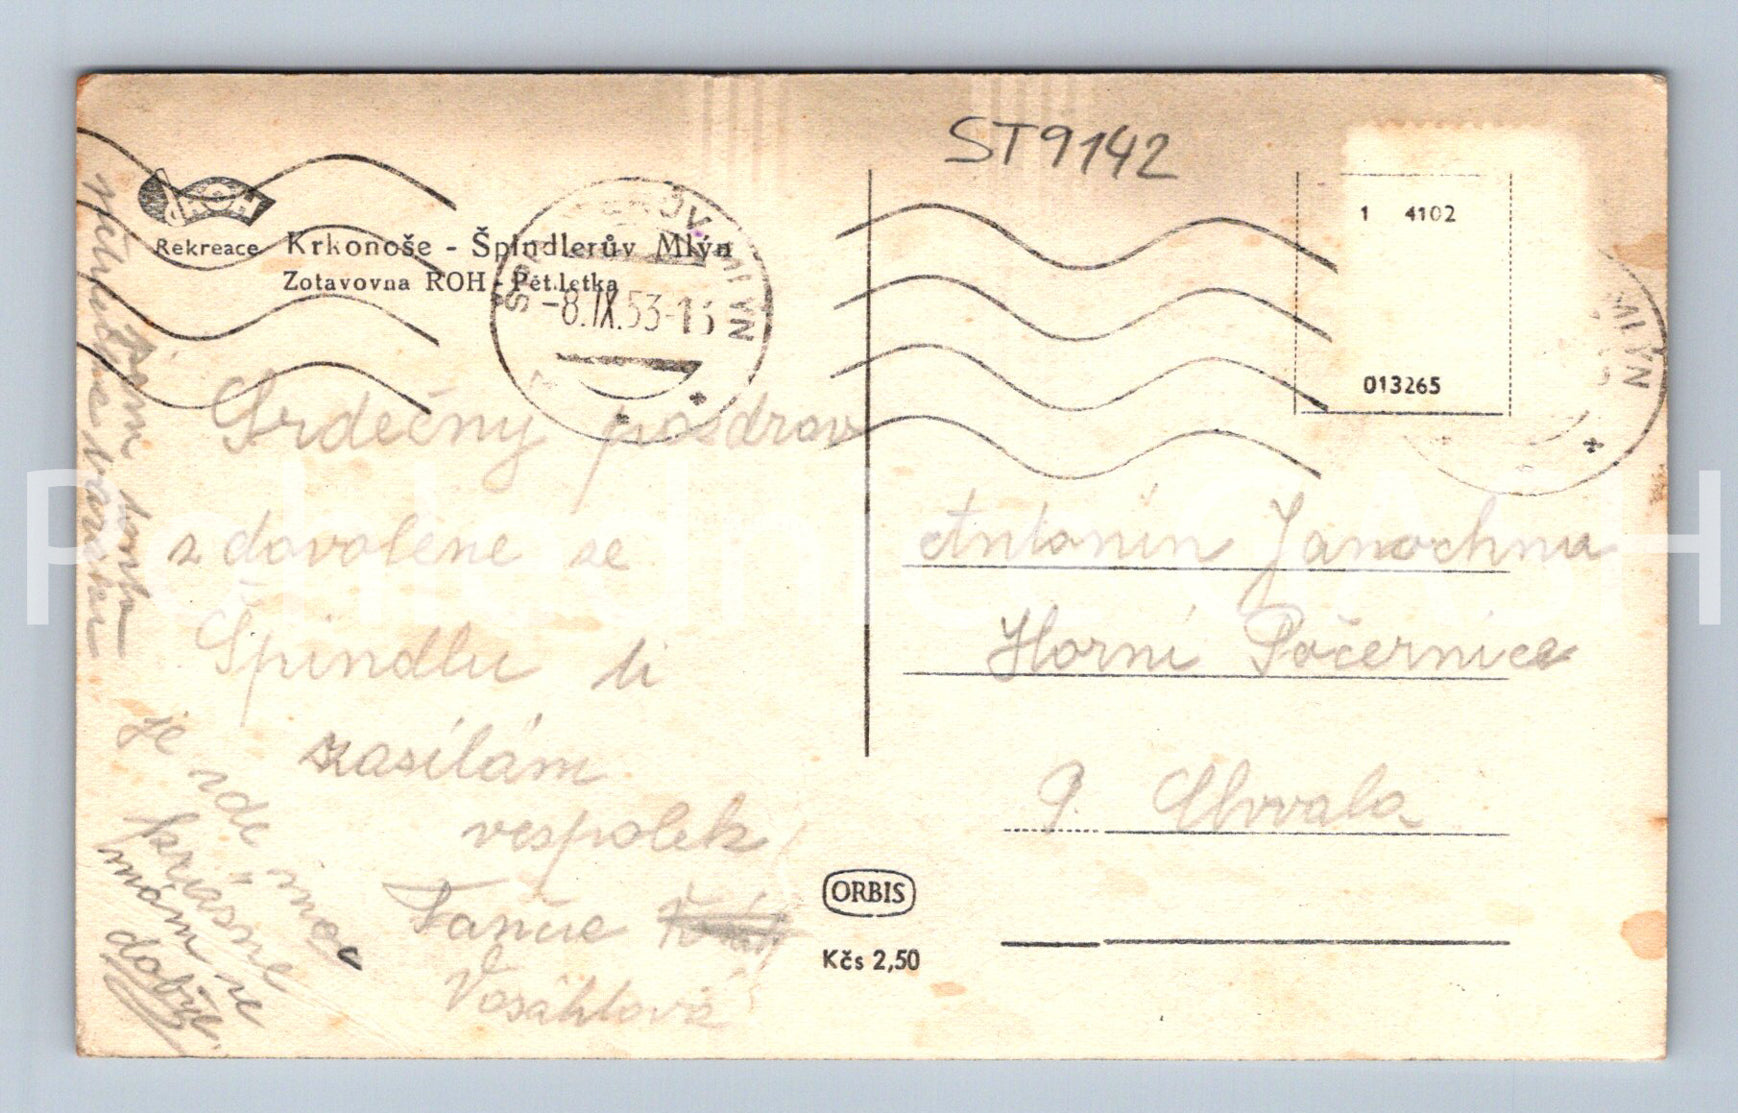 ST9142
ROH
Rekreace
Krkonoše - Špindlerův Mlýn
Zotavovna ROH - Pětiletka
-8.IX.53-13
MLÝN
1 4102
013265
MLÝN
Srdečný pozdrav
z dovoléne ze
Špindlu ti
zasílám
vespolek
Vosáhlová
je zde moc
kriásně
mám se
dobře
Antonín Janochna
Horní Počernice
P. Chvala
ORBIS
Kčs 2,50
Pohlednice CASH